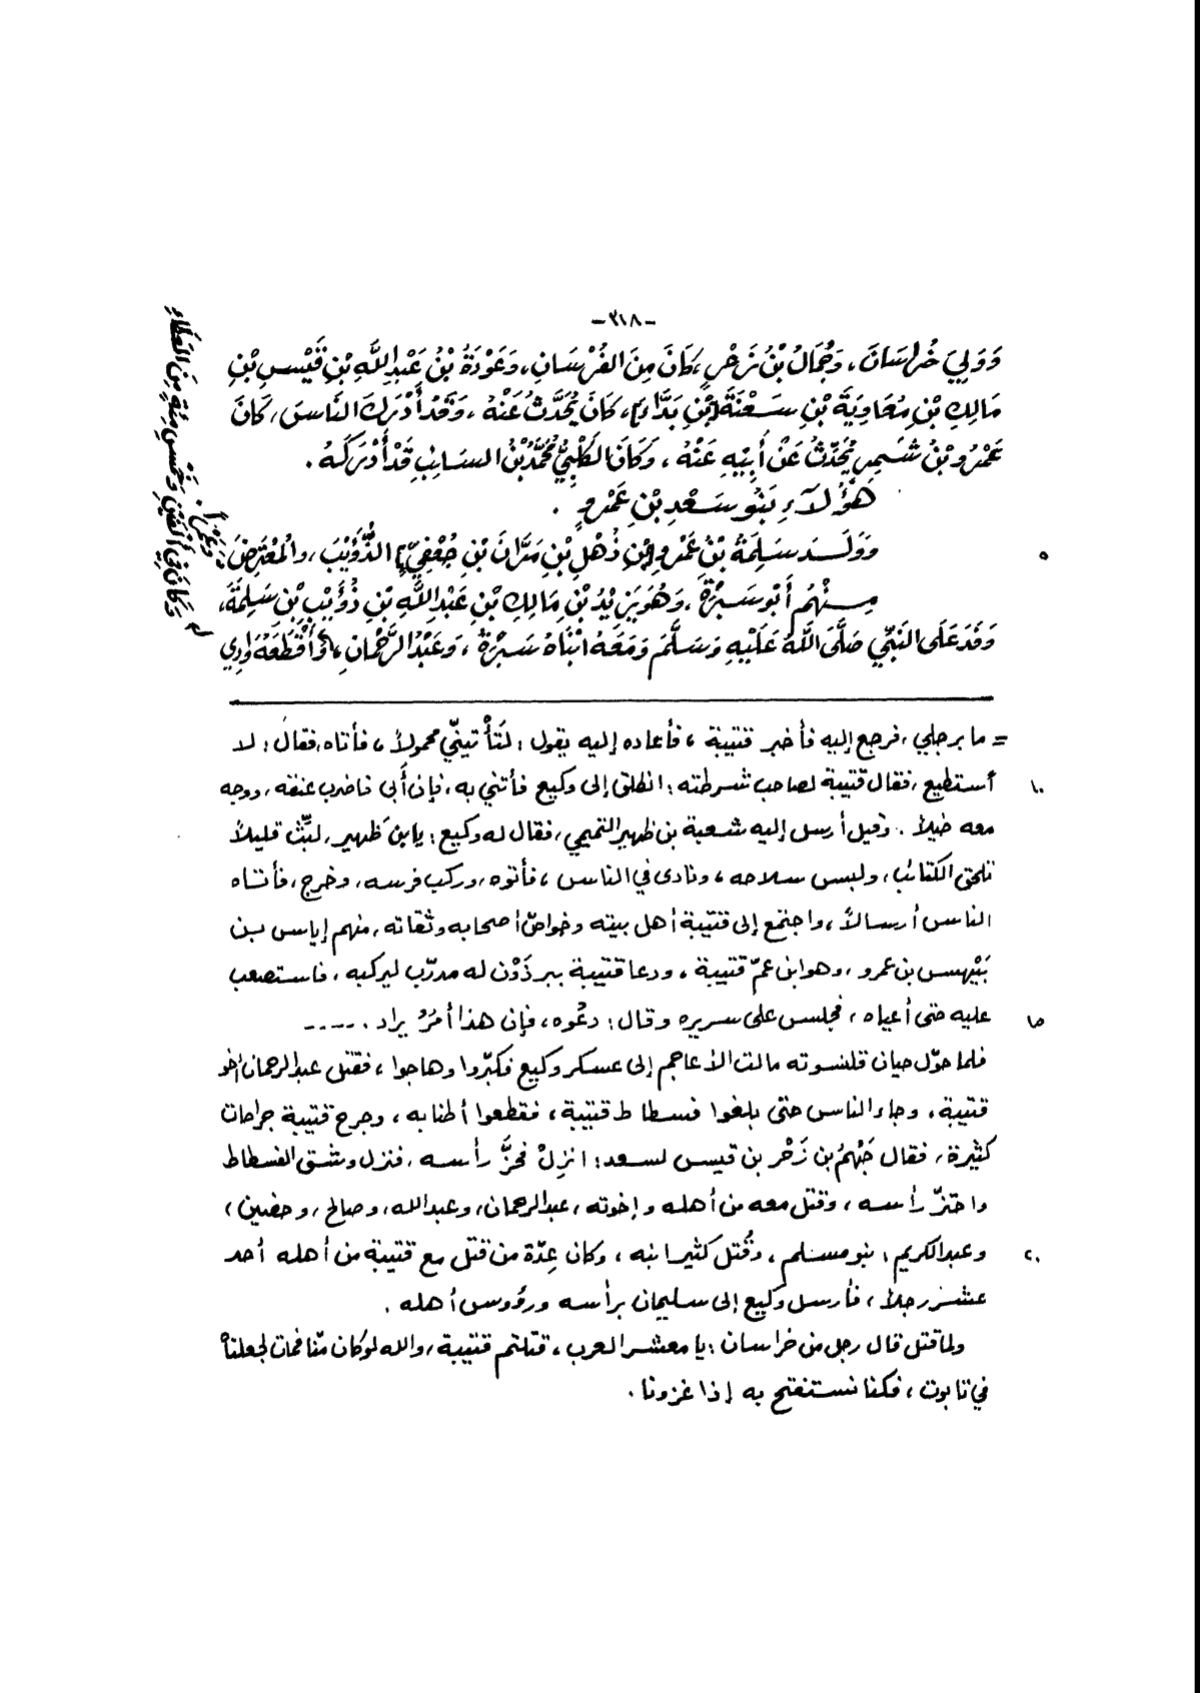 -٣١٨-
وَوَلِيَ خُرَاسَانَ، وَجُمَالُ بْنُ زَحْرٍ، كَانَ مِنَ الفُرْسَانِ، وَعَوْذَةُ بْنُ عَبْدِ اللَّهِ بْنِ قَيْسِ بْنِ
مَالِكِ بْنِ مُعَاوِيَةَ بْنِ سَعْنَةَ [بْنِ بَدَّاءَ]، كَانَ يُحَدَّثُ عَنْهُ، وَقَدْ أَدْرَكَ النَّاسَ، كَانَ
عَمْرُو بْنُ شَمِرٍ يُحَدِّثُ عَنْ أَبِيْهِ عَنْهُ، وَكَانَ الكَلْبِيُّ مُحَمَّدُ بْنُ السَّائِبِ قَدْ أَدْرَكَهُ.
هَؤُلَاءِ بَنُو سَعْدِ بْنِ عَمْرٍو.
وَوَلَــدَ سَلِمَةُ بْنُ عَمْرِو [بْنِ ذُهْلِ بْنِ مَرَّانَ بْنِ جُعْفِيّ] الذُّؤَيْبَ، والمُعْتَرِضَ،
مِنْهُم أَبُو سَبْرَةَ، وَهُوَ يَزِيْدُ بْنِ مَالِكِ بْنِ عَبْدِ اللَّهِ بْنِ ذُؤَيْبِ بْنِ سَلِمَةَ،
وَفَدَ عَلَى النَّبِيِّ صَلَّى اللَّهُ عَلَيْهِ وَسَلَّمَ وَمَعَهُ ابْنَاهُ سَبْرَةُ، وَعَبْدُ الرَّحْمَانِ، وَأَقْطَعَهُ وَادِي
وَكَانَ فِي أَلْفَيْنِ وَخَمْسِ مِئَةٍ مِنَ العَطَاءِ
٥
= ما برجلي، فرجع إليه فأخبر قتيبة، فأعاده إليه يقول: لتأتينّي محمولاً، فأتاه، فقال: لا
أستطيع، فقال قتيبة لصاحب شرطته: انطلق إلى وكيع فأتني به، فإن أبى فاضرب عنقه، ووجه
١٠
معه خيلاً. وقيل أرسل إليه شعبة بن ظهير التميمي، فقال له وكيع: يابن ظهير، لبّث قليلاً
تلحق الكتائب، ولبس سلاحه، ونادى في الناس، فأتوه، وركب فرسه، وخرج، فأتاه
الناس أرسالاً، واجتمع إلى قتيبة أهل بيته وخواصّ أصحابه وثقاته، منهم إياس بن
بَيْهس بن عمرو، وهو ابن عمّ قتيبة، ودعا قتيبة ببرذَوْن له مدرّب ليركبه، فاستصعب
عليه حتى أعياه، فجلس على سريره وقال: دعُوه، فإن هذا أمرٌ يراد. -----
١٥
فلما حوّل حيان قلنسوته مالت الأعاجم إلى عسكر وكيع فكبّروا وهاجوا، فقتل عبد الرحمان أخو
قتيبة، وجاء الناس حتى بلغوا فسطاط قتيبة، فقطعوا أطنابه، وجرح قتيبة جراحات
كثيرة، فقال جَهْمُ بن زَحْر بن قيس لسعد: انزِلْ فحزَّ رأسه، فنزل وشق الفسطاط
واحتزّ رأسه، وقتل معه من أهله وإخوته، عبد الرحمان، وعبد الله، وصالح، وحضين،
وعبد الكريم، بنو مسلم، وقُتل كثير ابنه، وكان عِدّة من قتل مع قتيبة من أهله أحد
٢٠
عشر رجلاً، فأرسل وكيع إلى سليمان برأسه ورؤوس أهله.
ولما قتل قال رجل من خراسان: يا معشر العرب، قتلتم قتيبة، والله لو كان منّا فمات لجعلناه
في تابوت، فكنا نستفتح به إذا غزونا.